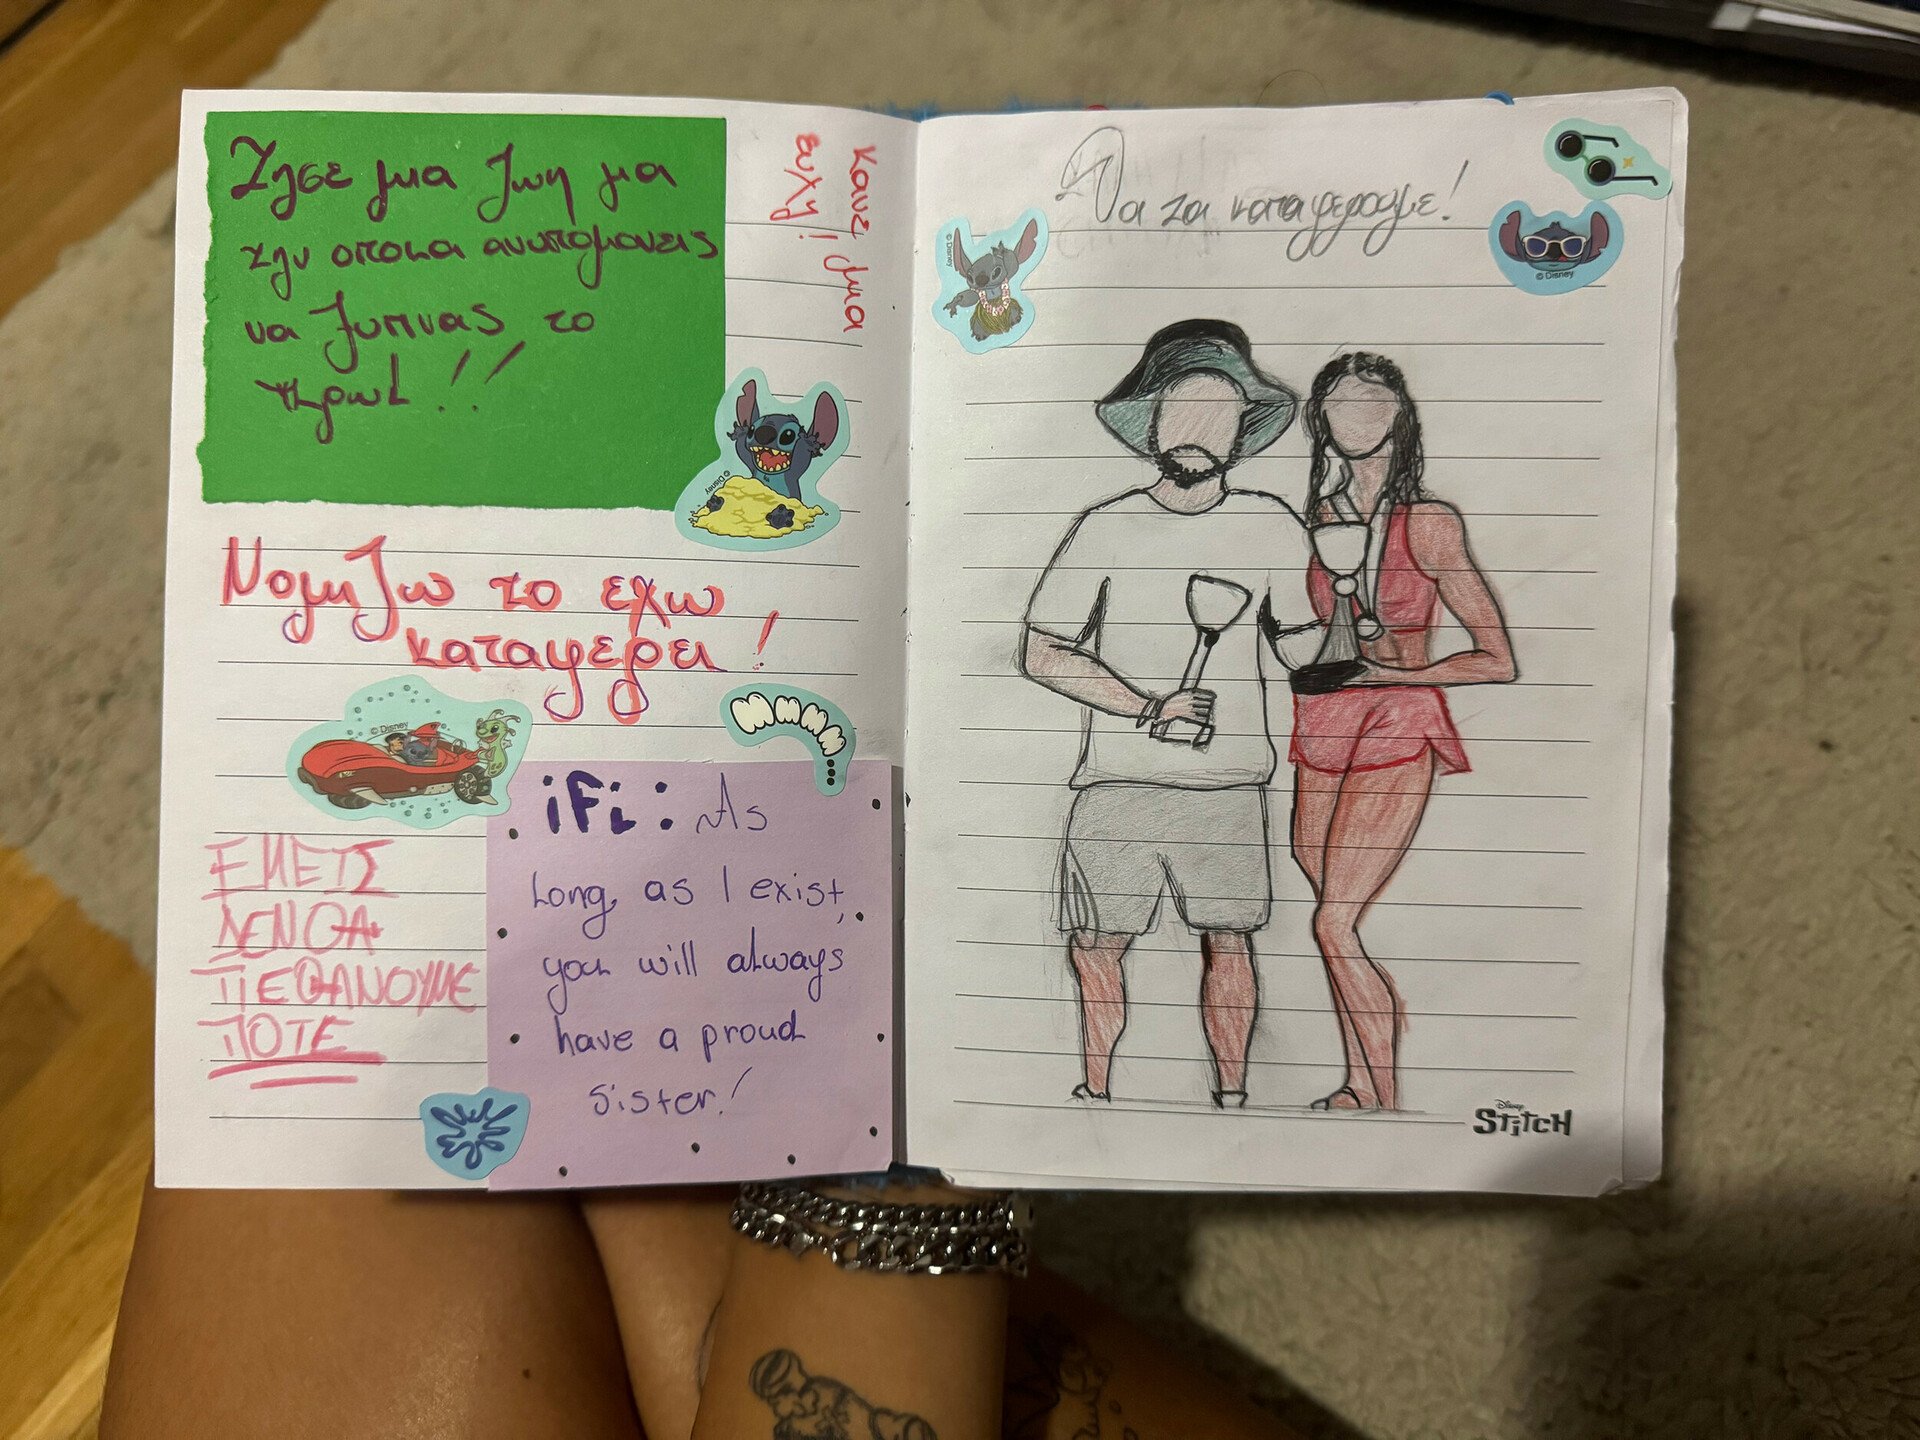 Ζησε μια ζωη για
την οποια ανυπομονεις
να ξυπνας το
πρωι!!
Κανε μια
ευχη!
© Disney
Νομιζω το εχω
καταφερει!
© Disney
ΕΜΕΙΣ
ΔΕΝ ΘΑ
ΠΕΘΑΝΟΥΜΕ
ΠΟΤΕ
ifi: As
long as I exist,
you will always
have a proud
sister!
Θα τα καταφερουμε!
© Disney
© Disney
Disney
STiTCH